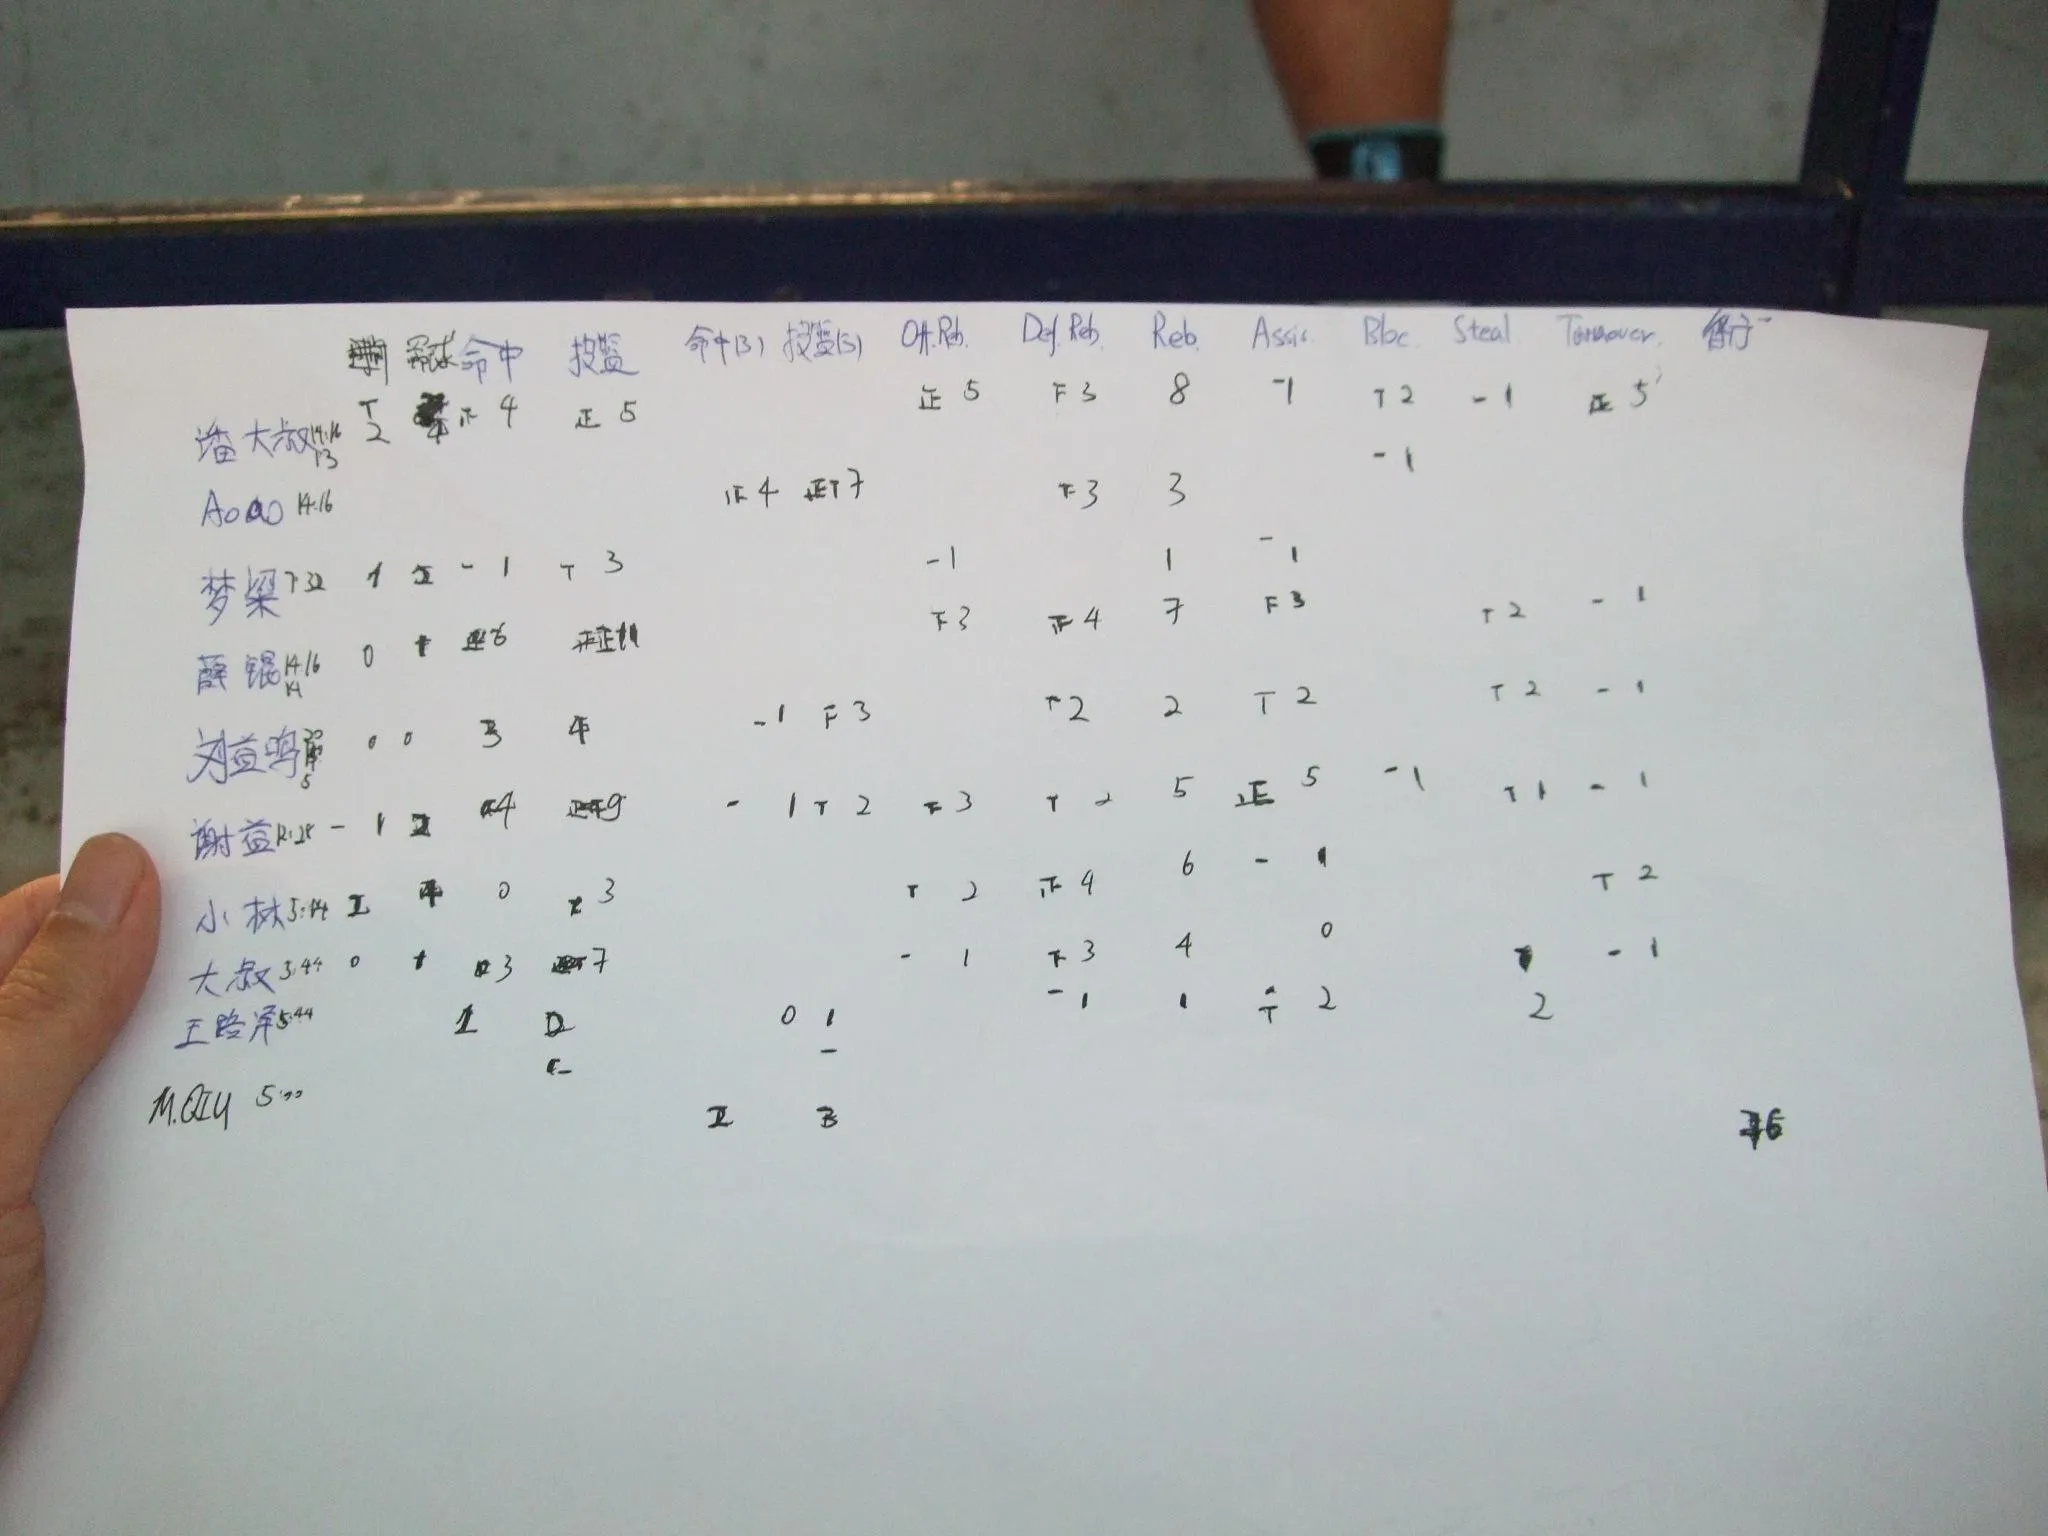 罚球 命中 投篮 命中(3) 投篮(3) Off.Reb. Def.Reb. Reb. Assis. Bloc. Steal Turnover.
潘大叔 14:16 13 T 2 4 正 4 正 5 正 5 F 3 8 -1 T 2 - 1 正 5
Aoao 14:16 正 4 正T 7 F 3 3 - 1
梦梁 7:32 1 - 1 T 3 - 1 1 - 1
薛锟 14:16 14 0 1 6 正正 11 F 3 正 4 7 F 3 T 2 - 1
刘益鸣 5 0 0 3 4 - 1 F 3 T 2 2 T 2 T 2 - 1
谢益 12:28 - 1 4 9 - 1 T 2 F 3 T 2 5 正 5 - 1 T 1 - 1
小林 5:44 0 3 T 2 正 4 6 - 1 T 2
大叔 5:44 0 1 3 7 - 1 F 3 4 0 - 1
王路泽 5:44 1 2 0 1 - 1 1 T 2 2
M.QIU 3